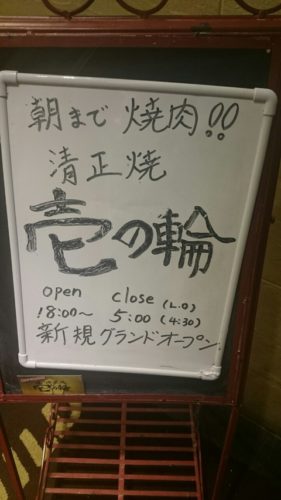 朝まで焼肉!!
清正焼
壱の輪
open close (L.O)
18:00〜 5:00 (4:30)
新規グランドオープン